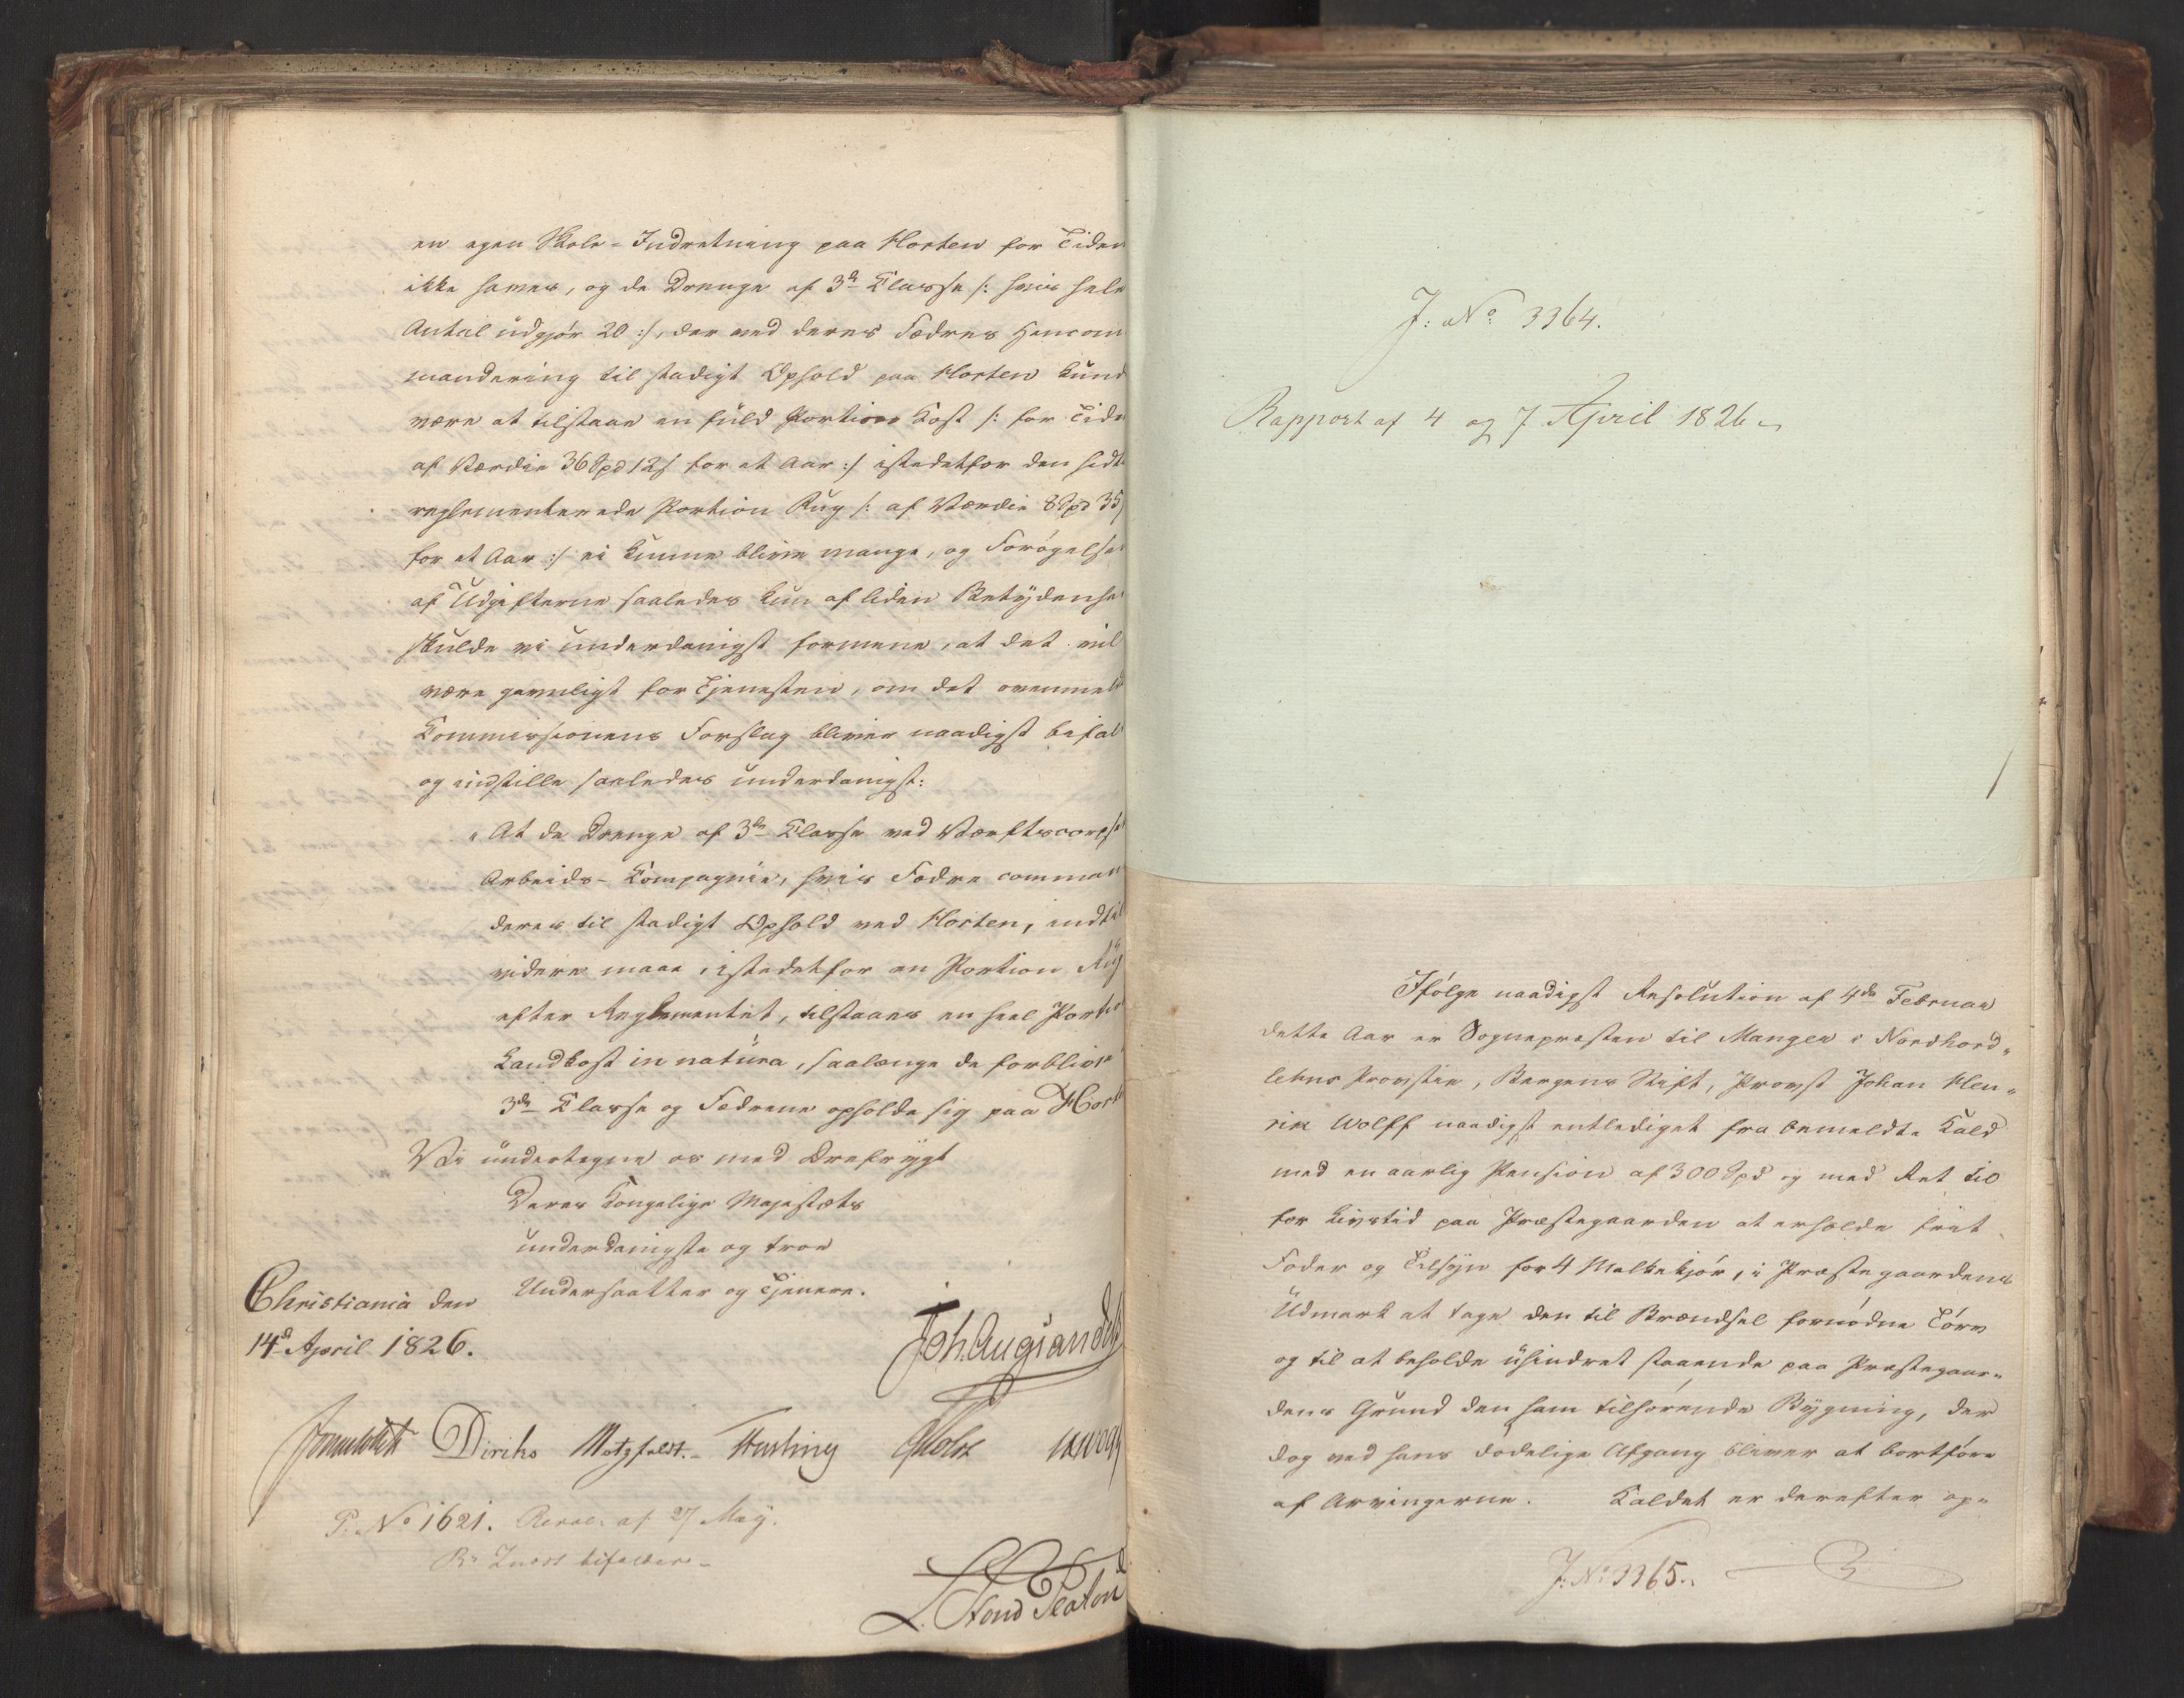 en egen Skole-Indretning paa Horten for Tiden
ikke haves, og de Drenge af 3d Classe /: hvis hele
Antal udgjør 20 :/, der ved deres Fædres Hencom
mandering til stadigt Ophold paa Horten kund
være at tilstaae en fuld Portion Kost /: for Tide
af Værdie 36 Spd 12 s for et Aar :/ istedetfor den hidt
reglementerede Portion Rug /: af Værdie 8 Spd 35
for et Aar :/ ei kunne blive mange, og Forøgelse
af Udgifterne saaledes kun af liden Betydenhe
skulde vi underdanigst formene, at det vil
være gavnligt for Tjenesten, om det ovenmel
Kommissionens Forslag bliver naadigst bifal
og indstille saaledes underdanigst:
"At de Drenge af 3de Classe ved Værftscorpse
Arbeids-Kompagnie, hvis Fædre comman
deres til stadigt Ophold ved Horten, indtil
videre maae, istedetfor en Portion Rug
efter Reglementet, tilstaaes en heel Porti
Landkost in natura, saalænge de forblive
3de Classe og Fædrene opholde sig paa Hort
Vi undertegne os med Ærefrygt
Deres Kongelige Majestæts
underdanigste og troe
Undersaatter og Tjenere.
Christiania den
14d April 1826.
Joh. Aug Sandels
Sommerhielm Diriks Motzfeldt. Fasting Holst
P. No 1621. Resol. af 27 May.
bifaldes
J: No 3364.
Rapport af 4 og 7 April 1826
Ifølge naadigst Resolution af 4de Februar
dette Aar er Sognepræsten til Manger i Nordhord„
lehns Provstie, Bergens Stift, Provst Johan Hen„
rik Wolff naadigst entlediget fra bemeldte Kald
med en aarlig Pension af 300 Spd og med Ret til
for Livstid paa Præstegaarden at erholde frit
Foder og Tilsyn for 4 Malkekjør, i Præstegaardens
Udmark at tage den til Brændsel fornødne Törv
og til at beholde uhindret staaende paa Præstegaar„
dens Grund den ham tilhørende Bygning, der
dog ved hans dødelige Afgang bliver at bortføre
af Arvingerne. Kaldet er derefter op„
J: No 3365.